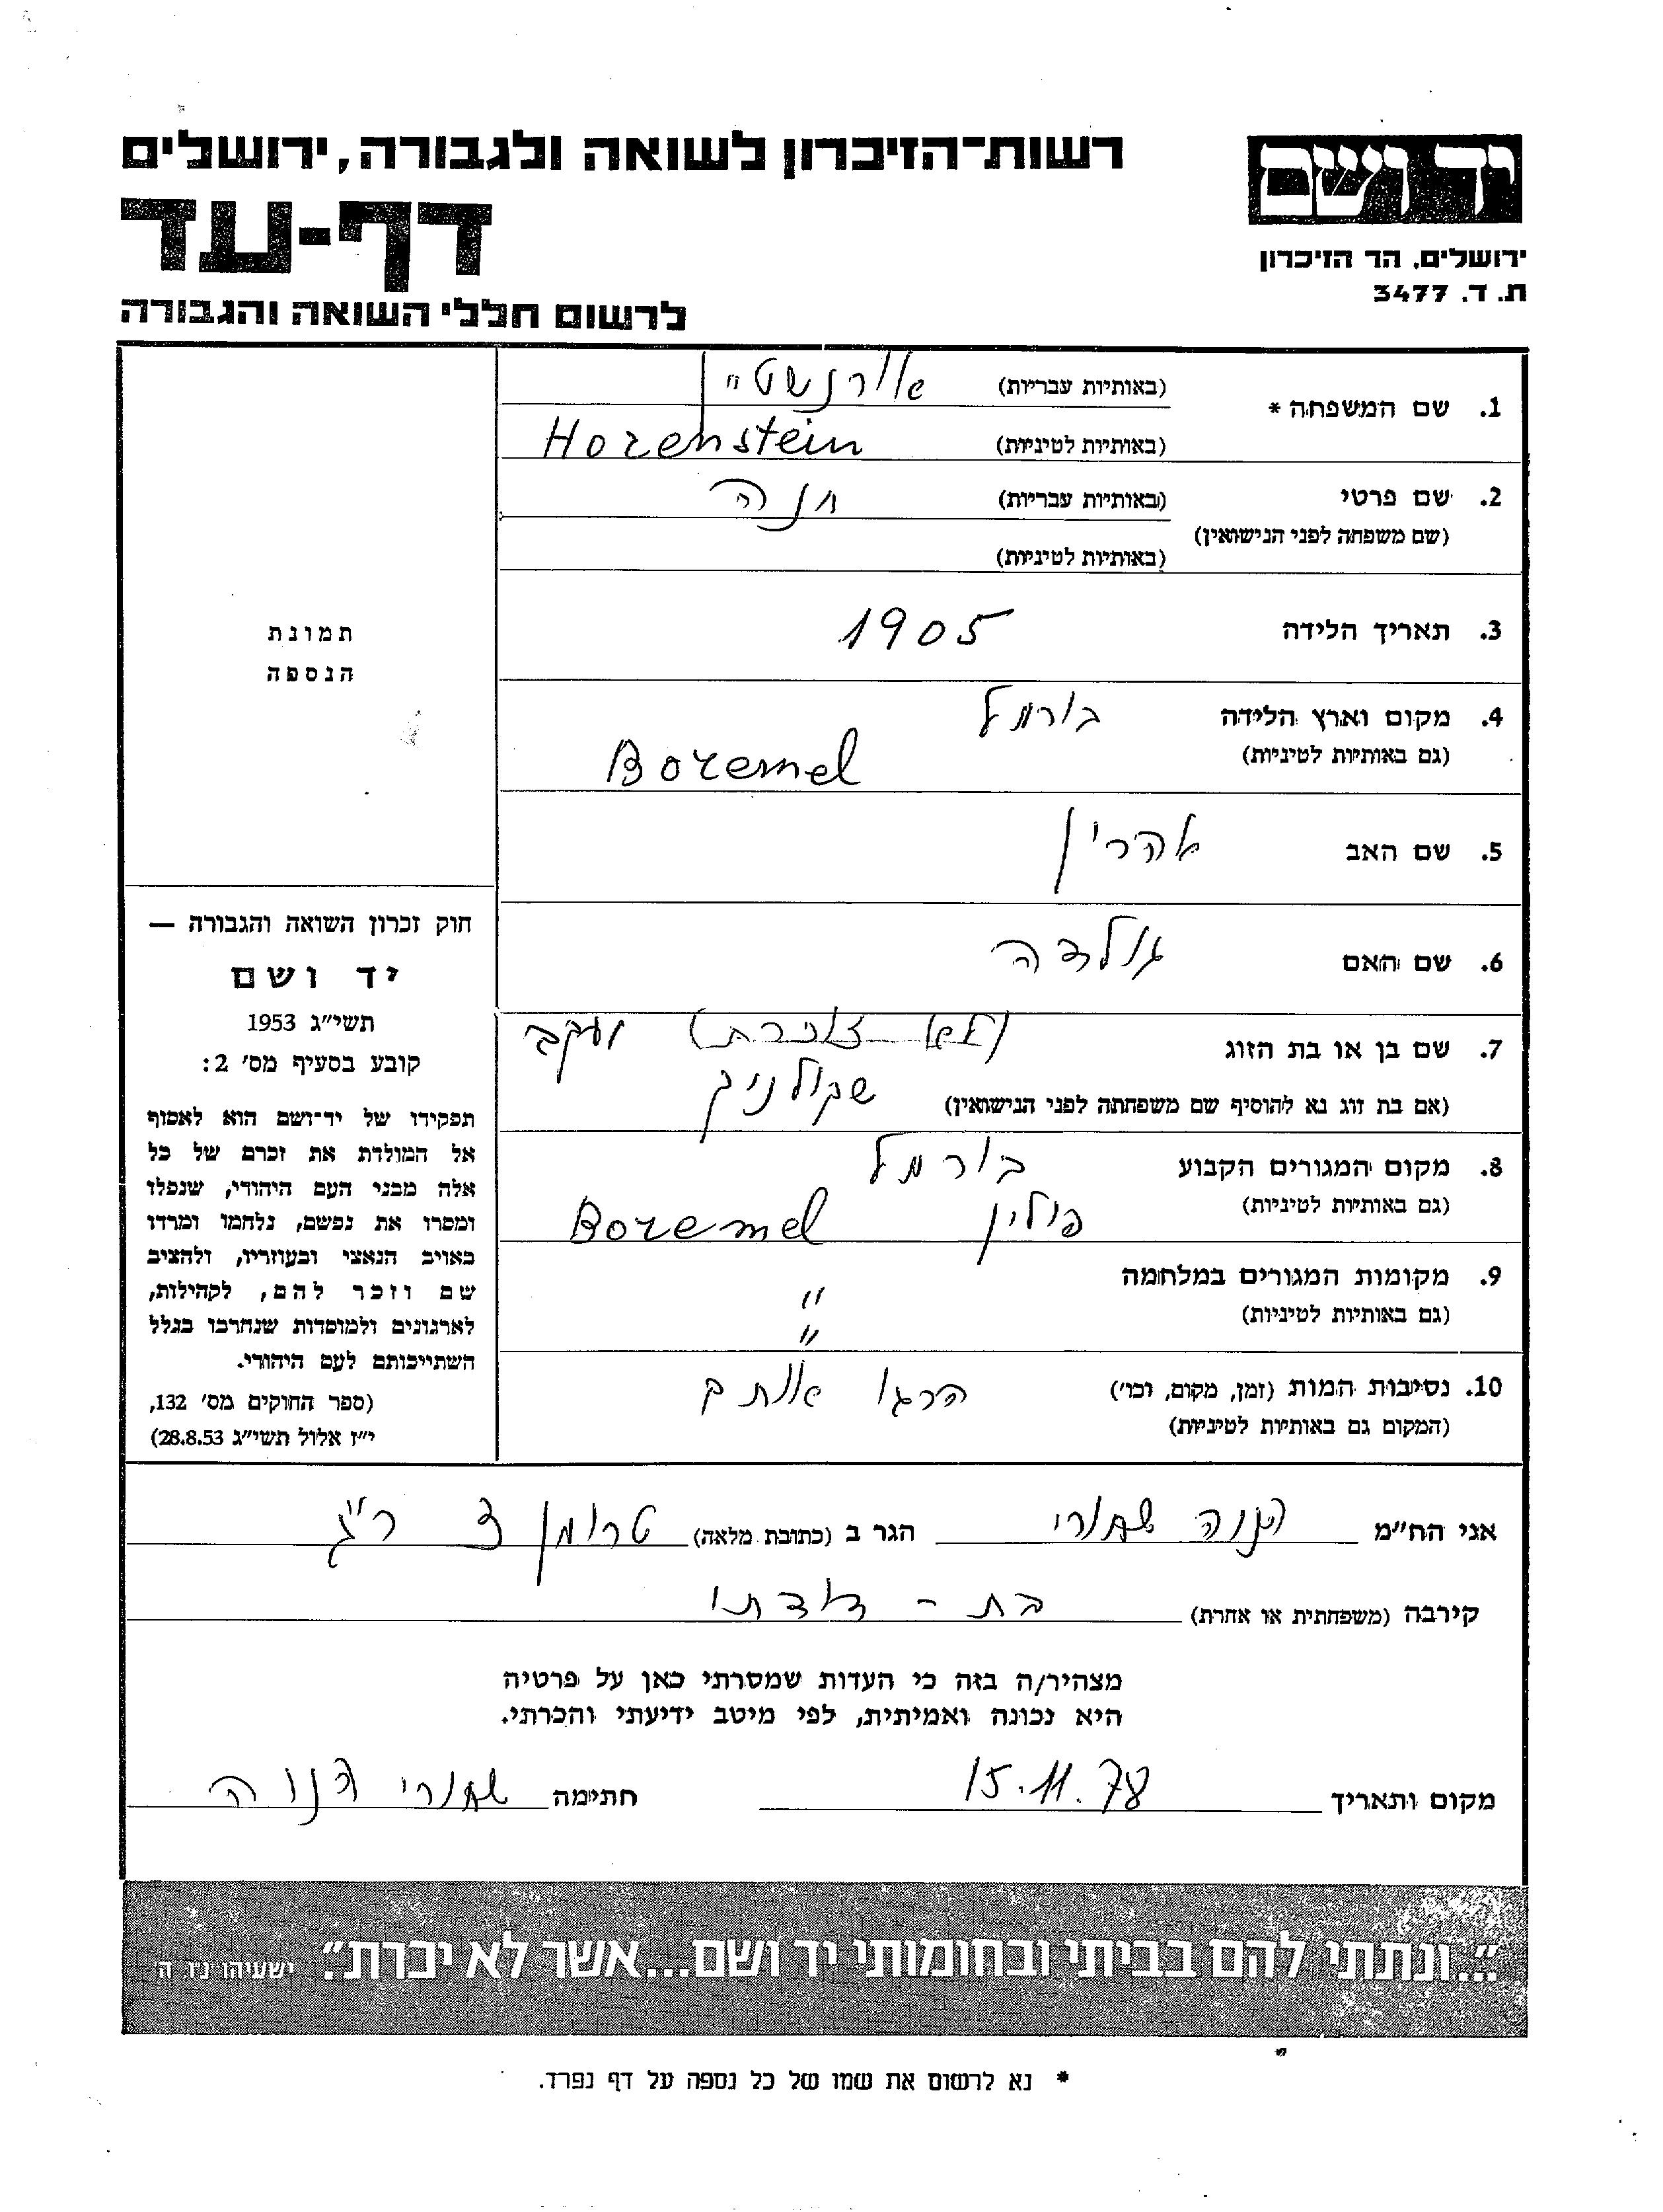 יד ושם
ירושלים, הר הזיכרון
ת. ד. 3477
רשות־הזיכרון לשואה ולגבורה, ירושלים
דף-עד
לרשום חללי השואה והגבורה
1. שם המשפחה * (באותיות עבריות) אורנשטיין
(באותיות לטיניות) Horenstein
2. שם פרטי (באותיות עבריות) חנה
(שם משפחה לפני הנישואין)
(באותיות לטיניות)
3. תאריך הלידה 1905
4. מקום וארץ הלידה בורמל
(גם באותיות לטיניות) Boremel
5. שם האב אהרון
6. שם האם גולדה
7. שם בן או בת הזוג (לא זוכרת) יעקב
(אם בת זוג נא להוסיף שם משפחתה לפני הנישואין) שקולניק
8. מקום המגורים הקבוע בורמל
(גם באותיות לטיניות) פולין Boremel
9. מקומות המגורים במלחמה "
(גם באותיות לטיניות) "
10. נסיבות המות (זמן, מקום, וכו') הרגו אותם
(המקום גם באותיות לטיניות)
תמונת
הנספה
חוק זכרון השואה והגבורה —
יד ושם
תשי"ג 1953
קובע בסעיף מס' 2:
תפקידו של יד־ושם הוא לאסוף
אל המולדת את זכרם של כל
אלה מבני העם היהודי, שנפלו
ומסרו את נפשם, נלחמו ומרדו
באויב הנאצי ובעוזריו, ולהציב
שם וזכר להם, לקהילות,
לארגונים ולמוסדות שנחרבו בגלל
השתייכותם לעם היהודי.
(ספר החוקים מס' 132,
י"ז אלול תשי"ג 28.8.53)
אני הח"מ הגר ב (כתובת מלאה) טרומן 3 ר"ג
קירבה (משפחתית או אחרת) בת - דודתי
מצהיר/ה בזה כי העדות שמסרתי כאן על פרטיה
היא נכונה ואמיתית, לפי מיטב ידיעתי והכרתי.
מקום ותאריך 15.11.78 חתימה
"...ונתתי להם בביתי ובחומותי יד ושם...אשר לא יכרת". ישעיהו נו, ה
* נא לרשום את שמו של כל נספה על דף נפרד.